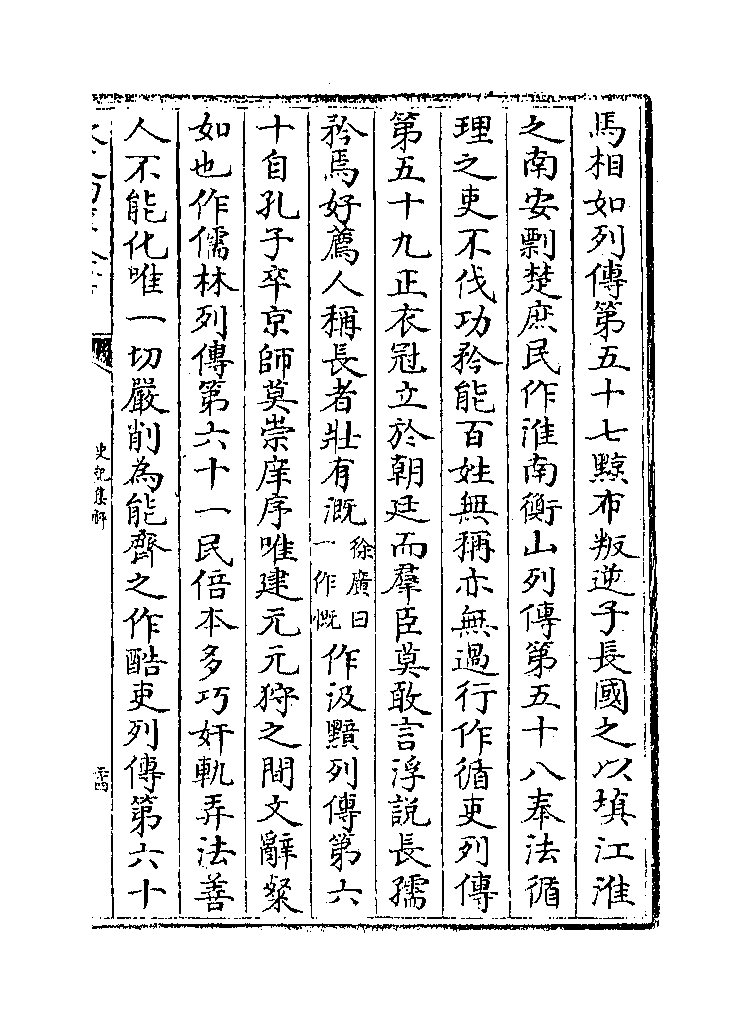 馬相如列傳第五十七黥布叛逆子長國之以填江淮
之南安剽楚庶民作淮南衡山列傳第五十八奉法循
理之吏不伐功矜能百姓無稱亦無過行作循吏列傳
第五十九正衣冠立於朝廷而羣臣莫敢言浮說長孺
矜焉好薦人稱長者壯有溉
徐廣曰
一作慨
作汲黯列傳第六
十自孔子卒京師莫崇庠序唯建元元狩之間文辭粲
如也作儒林列傳第六十一民倍本多巧奸軌弄法善
人不能化唯一切嚴削為能齊之作酷吏列傳第六十
史記集解